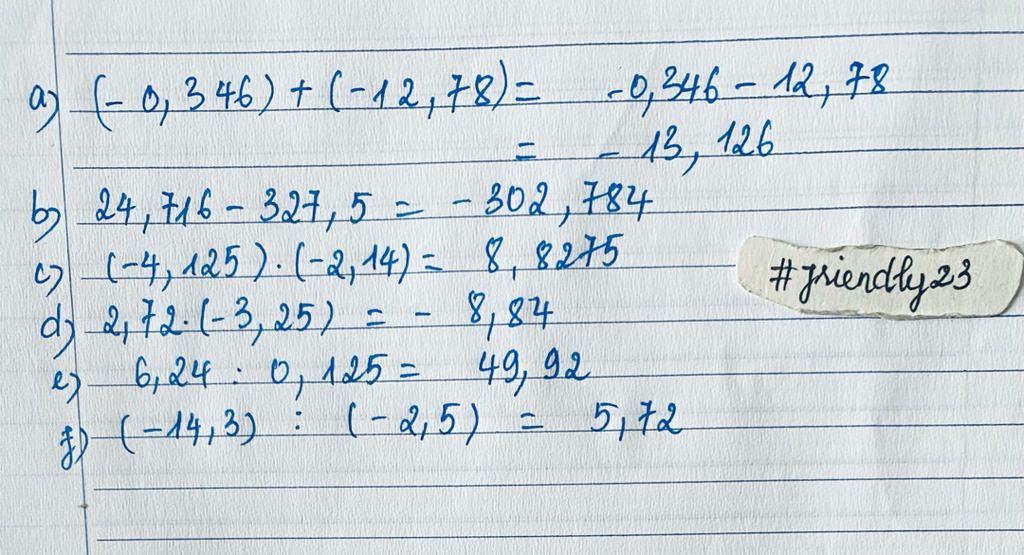 a) (-0,346) + (-12,78) = -0,346 - 12,78
= - 13,126
b) 24,716 - 327,5 = - 302,784
c) (-4,125) . (-2,14) = 8,8275
#friendly23
d) 2,72 . (-3,25) = - 8,84
e) 6,24 : 0,125 = 49,92
f) (-14,3) : (-2,5) = 5,72